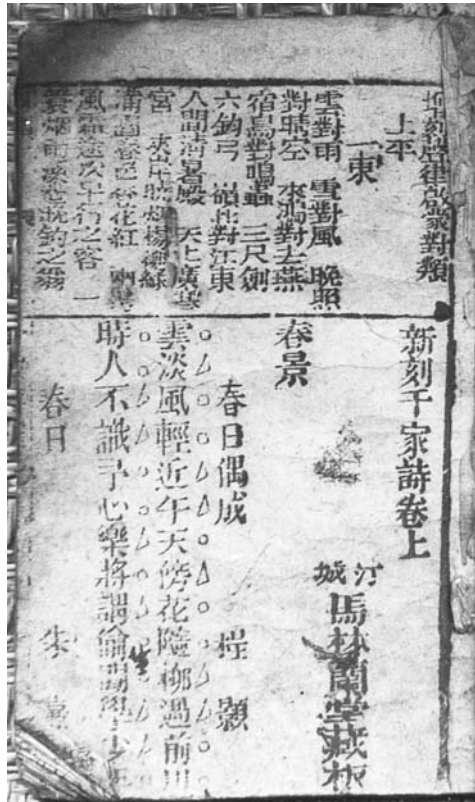 刻聲律啟蒙對類
上平
一東
雲對雨　雪對風　晚照
對晴空　來鴻對去燕
宿鳥對鳴蟲　三尺劍
六鈞弓　嶺北對江東
人間清暑殿　天上廣寒
宮　夾岸曉煙楊柳綠
滿園春色杏花紅　兩鬢
風霜途次早行之客　一
簑煙雨溪邊晚釣之翁
新刻千家詩卷上
汀城
馬林蘭堂藏板
春景
春日偶成　程顥
雲淡風輕近午天傍花隨柳過前川
時人不識予心樂將謂偷閒學少年
春日　朱熹